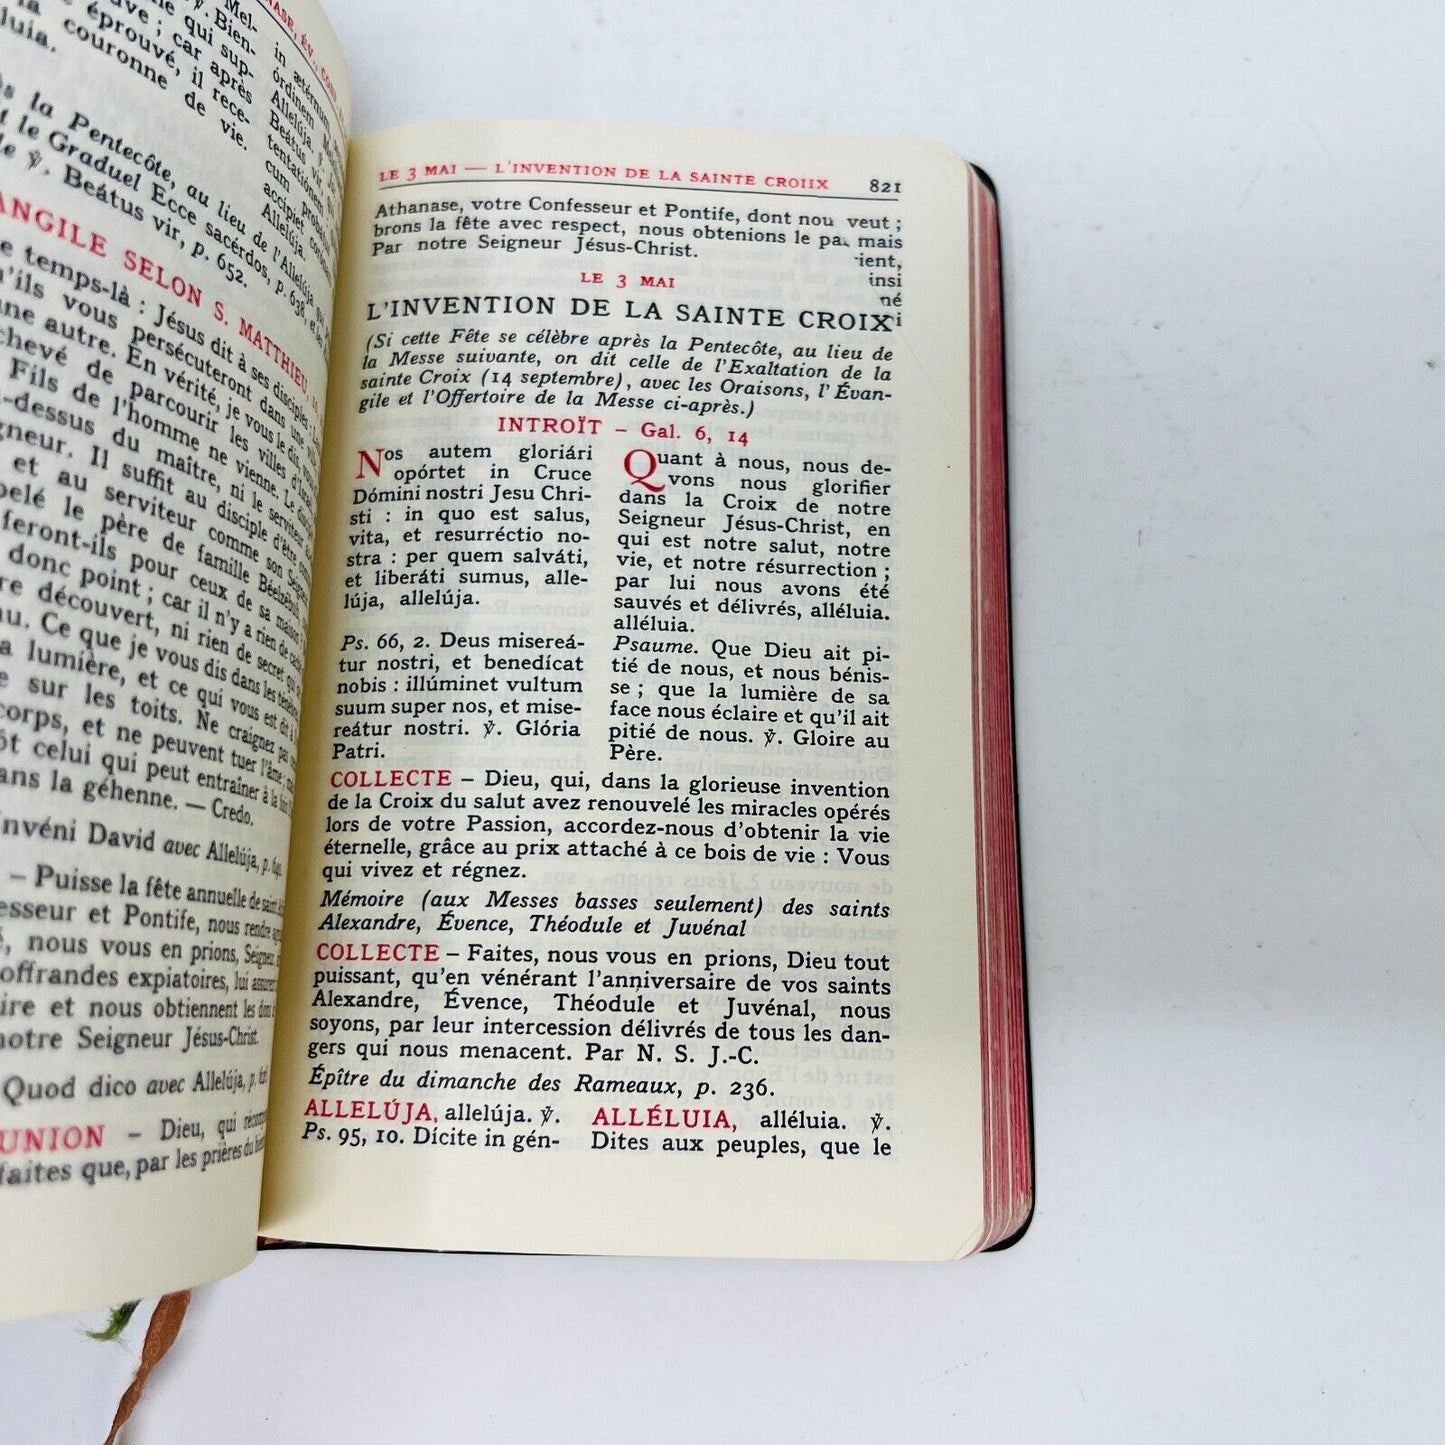 NASE, ÉV., CONF.
Mel-
℣. Bien-
uve ; car après
me qui sup-
éprouvé, il rece-
la couronne de vie.
luia.
in ætérnum,
órdinem
Allelúja.
Beátus vir,
tentatiónem
cum
accípiet
Allelúja.
la Pentecôte, au lieu de l'Allelúja
le Graduel Ecce sacérdos, p. 638, et
℣. Beátus vir, p. 652.
ANGILE SELON S. MATTHIEU,
e temps-là : Jésus dit à ses disciples :
u'ils vous persécuteront dans une
une autre. En vérité, je vous le dit,
chevé de parcourir les villes
Fils de l'homme ne vienne. Le
-dessus du maître, ni le serviteur
gneur. Il suffit au disciple d'être
et au serviteur comme son Seigneur
pelé le père de famille Béelzébub,
feront-ils pour ceux de sa maison
donc point ; car il n'y a rien de
re découvert, ni rien de secret qui
nu. Ce que je vous dis dans les
a lumière, et ce qui vous est dit à
sur les toits. Ne craignez pas
corps, et ne peuvent tuer l'âme ;
ôt celui qui peut entraîner à la fois
ans la géhenne. — Credo.
Invéni David avec Allelúja, p.
– Puisse la fête annuelle de saint
esseur et Pontife, nous rendre
nous vous en prions,
offrandes expiatoires, lui
ire et nous obtiennent les dons
notre Seigneur Jésus-Christ.
Quod dico avec Allelúja, p.
UNION – Dieu, qui
faites que, par les prières du
LE 3 MAI — L'INVENTION DE LA SAINTE CROIIX 821
Athanase, votre Confesseur et Pontife, dont nou veut ;
brons la fête avec respect, nous obtenions le pa mais
Par notre Seigneur Jésus-Christ. rient,
LE 3 MAI insi
né
L'INVENTION DE LA SAINTE CROIX
(Si cette Fête se célèbre après la Pentecôte, au lieu de
la Messe suivante, on dit celle de l'Exaltation de la
sainte Croix (14 septembre), avec les Oraisons, l'Évan-
gile et l'Offertoire de la Messe ci-après.)
INTROÏT – Gal. 6, 14
Nos autem gloriári
opórtet in Cruce
Dómini nostri Jesu Chri-
sti : in quo est salus,
vita, et resurréctio no-
stra : per quem salváti,
et liberáti sumus, alle-
lúja, allelúja.
Ps. 66, 2. Deus misereá-
tur nostri, et benedícat
nobis : illúminet vultum
suum super nos, et mise-
reátur nostri. ℣. Glória
Patri.
Quant à nous, nous de-
vons nous glorifier
dans la Croix de notre
Seigneur Jésus-Christ, en
qui est notre salut, notre
vie, et notre résurrection ;
par lui nous avons été
sauvés et délivrés, alléluia.
alléluia.
Psaume. Que Dieu ait pi-
tié de nous, et nous bénis-
se ; que la lumière de sa
face nous éclaire et qu'il ait
pitié de nous. ℣. Gloire au
Père.
COLLECTE – Dieu, qui, dans la glorieuse invention
de la Croix du salut avez renouvelé les miracles opérés
lors de votre Passion, accordez-nous d'obtenir la vie
éternelle, grâce au prix attaché à ce bois de vie : Vous
qui vivez et régnez.
Mémoire (aux Messes basses seulement) des saints
Alexandre, Évence, Théodule et Juvénal
COLLECTE – Faites, nous vous en prions, Dieu tout
puissant, qu'en vénérant l'anniversaire de vos saints
Alexandre, Évence, Théodule et Juvénal, nous
soyons, par leur intercession délivrés de tous les dan-
gers qui nous menacent. Par N. S. J.-C.
Épître du dimanche des Rameaux, p. 236.
ALLELÚJA, allelúja. ℣.
Ps. 95, 10. Dícite in gén-
ALLÉLUIA, alléluia. ℣.
Dites aux peuples, que le